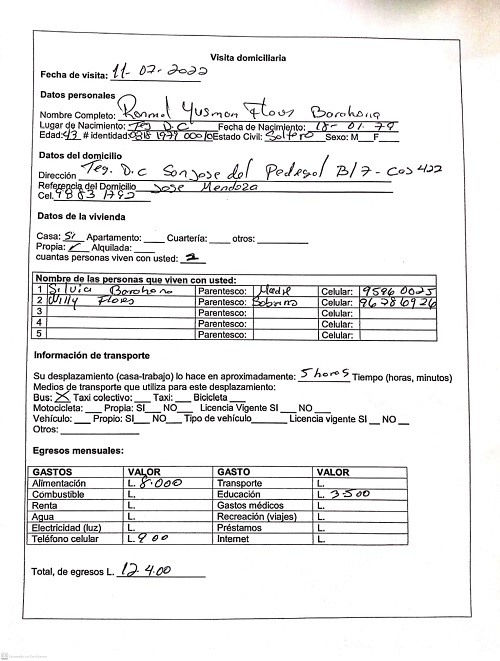 Visita domiciliaria
Fecha de visita: 11-02-2022
Datos personales
Nombre Completo: Ronmel Yusman Flores Barahona
Lugar de Nacimiento: Teg D.C Fecha de Nacimiento: 18-01-79
Edad: 43 # identidad: Estado Civil: Soltero Sexo: M__ F
Datos del domicilio
Dirección Teg. D.C San Jose del Pedregal B/7- Cas 422
Referencia del Domicilio Jose Mendoza
Cel. 9883 1792
Datos de la vivienda
Casa: Si Apartamento: ____ Cuartería: ____ otros: ________
Propia: ✓ Alquilada: ____
cuantas personas viven con usted: 2
Nombre de las personas que viven con usted:
1 Silvia Barahona Parentesco: Madre Celular: 9596 0025
2 Willy Flores Parentesco: Sobrino Celular: 96786926
3 Parentesco: Celular:
4 Parentesco: Celular:
5 Parentesco: Celular:
Información de transporte
Su desplazamiento (casa-trabajo) lo hace en aproximadamente: 5 horas Tiempo (horas, minutos)
Medios de transporte que utiliza para este desplazamiento:
Bus: X Taxi colectivo: ____ Taxi: ____ Bicicleta ____
Motocicleta: ___ Propia: SI___ NO___ Licencia Vigente SI ___ NO ___
Vehículo: ___ Propio: SI___ NO___ Tipo de vehículo______ Licencia vigente SI __ NO __
Otros: ____________
Egresos mensuales:
GASTOS VALOR GASTO VALOR
Alimentación L. 8.000 Transporte L.
Combustible L. Educación L. 3500
Renta L. Gastos médicos L.
Agua L. Recreación (viajes) L.
Electricidad (luz) L. Préstamos L.
Teléfono celular L. 900 Internet L.
Total, de egresos L. 12.400